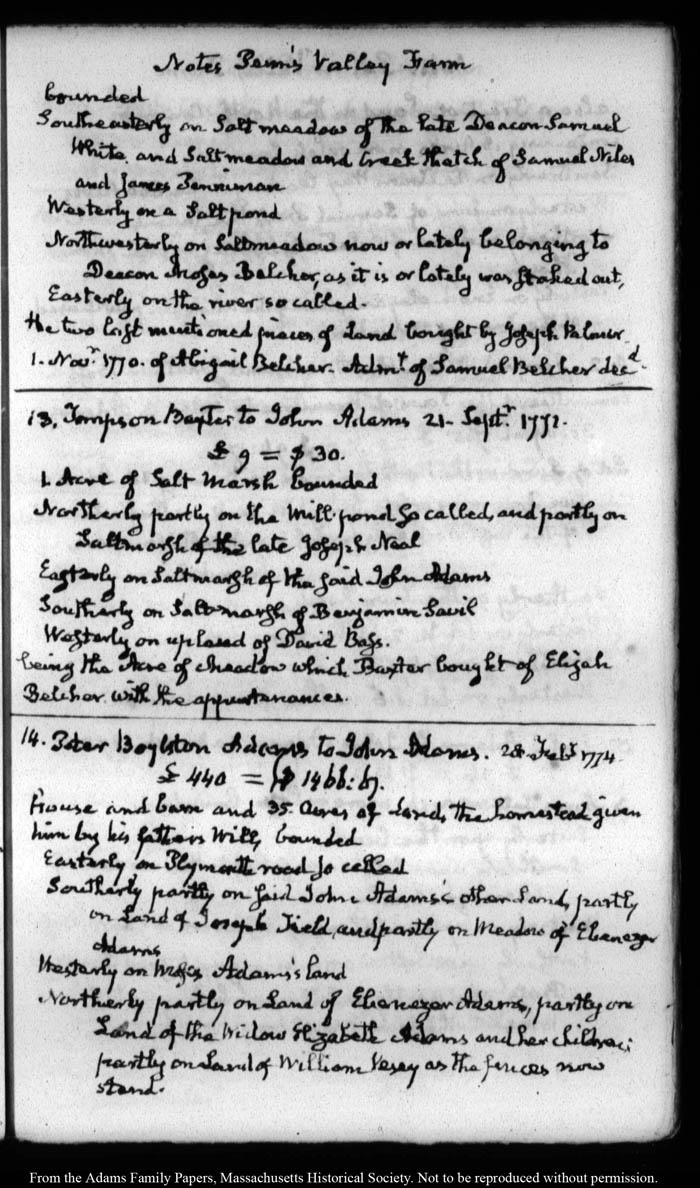 Notes Penn's Valley Farm
bounded
Southeasterly on Salt meadow of the late Deacon Samuel
White and Salt meadow and Creek thatch of Samuel Niles
and James Penniman
Westerly on a Salt pond
Northwesterly on Saltmeadow now or lately belonging to
Deacon Moses Belcher, as it is or lately was staked out,
Easterly on the river so called.
the two last mentioned pieces of Land bought by Joseph Palmer
1. Novr. 1770. of Abigail Belcher. Admt. of Samuel Belcher decd.
13. Tompson Baxter to John Adams 21. Septr. 1771.
£ 9 = $ 30.
1. Acre of Salt Marsh bounded
Northerly partly on the Mill pond so called, and partly on
Saltmarsh of the late Joseph Neal
Easterly on Saltmarsh of the said John Adams
Southerly on Salt marsh of Benjamin Savil
Westerly on upland of David Bass.
being the Acre of Meadow which Baxter bought of Elijah
Belcher with the appurtenances.
14. Peter Boylston Adams to John Adams. 28 Feb. 1774.
£ 440 = $ 1466:67.
House and barn and 35. Acres of Land, the homestead given
him by his fathers Will, bounded
Easterly on Plymouth road so called
Southerly partly on said John Adams's other Land, partly
on Land of Joseph Field, and partly on Meadow of Ebenezer
Adams
Westerly on Moses Adams's land
Northerly partly on Land of Ebenezer Adams, partly on
Land of the Widow Elizabeth Adams and her children;
partly on Land of William Vesey as the fences now
stand.
From the Adams Family Papers, Massachusetts Historical Society. Not to be reproduced without permission.